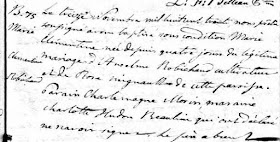 B. 75 Le treize Novembre mil huit cent trente nous prêtre
Marie soussigné avons baptisé sous condition Marie
Clementine née depuis quatre jours du légitime
mariage d'Anselme Robichaud cultivateur
Robichaud et de Rose Mignault de cette paroisse
Parain Charlemagne Morin maraine
Charlotte Hudon Beaulieu qui ont déclaré
ne savoir signer